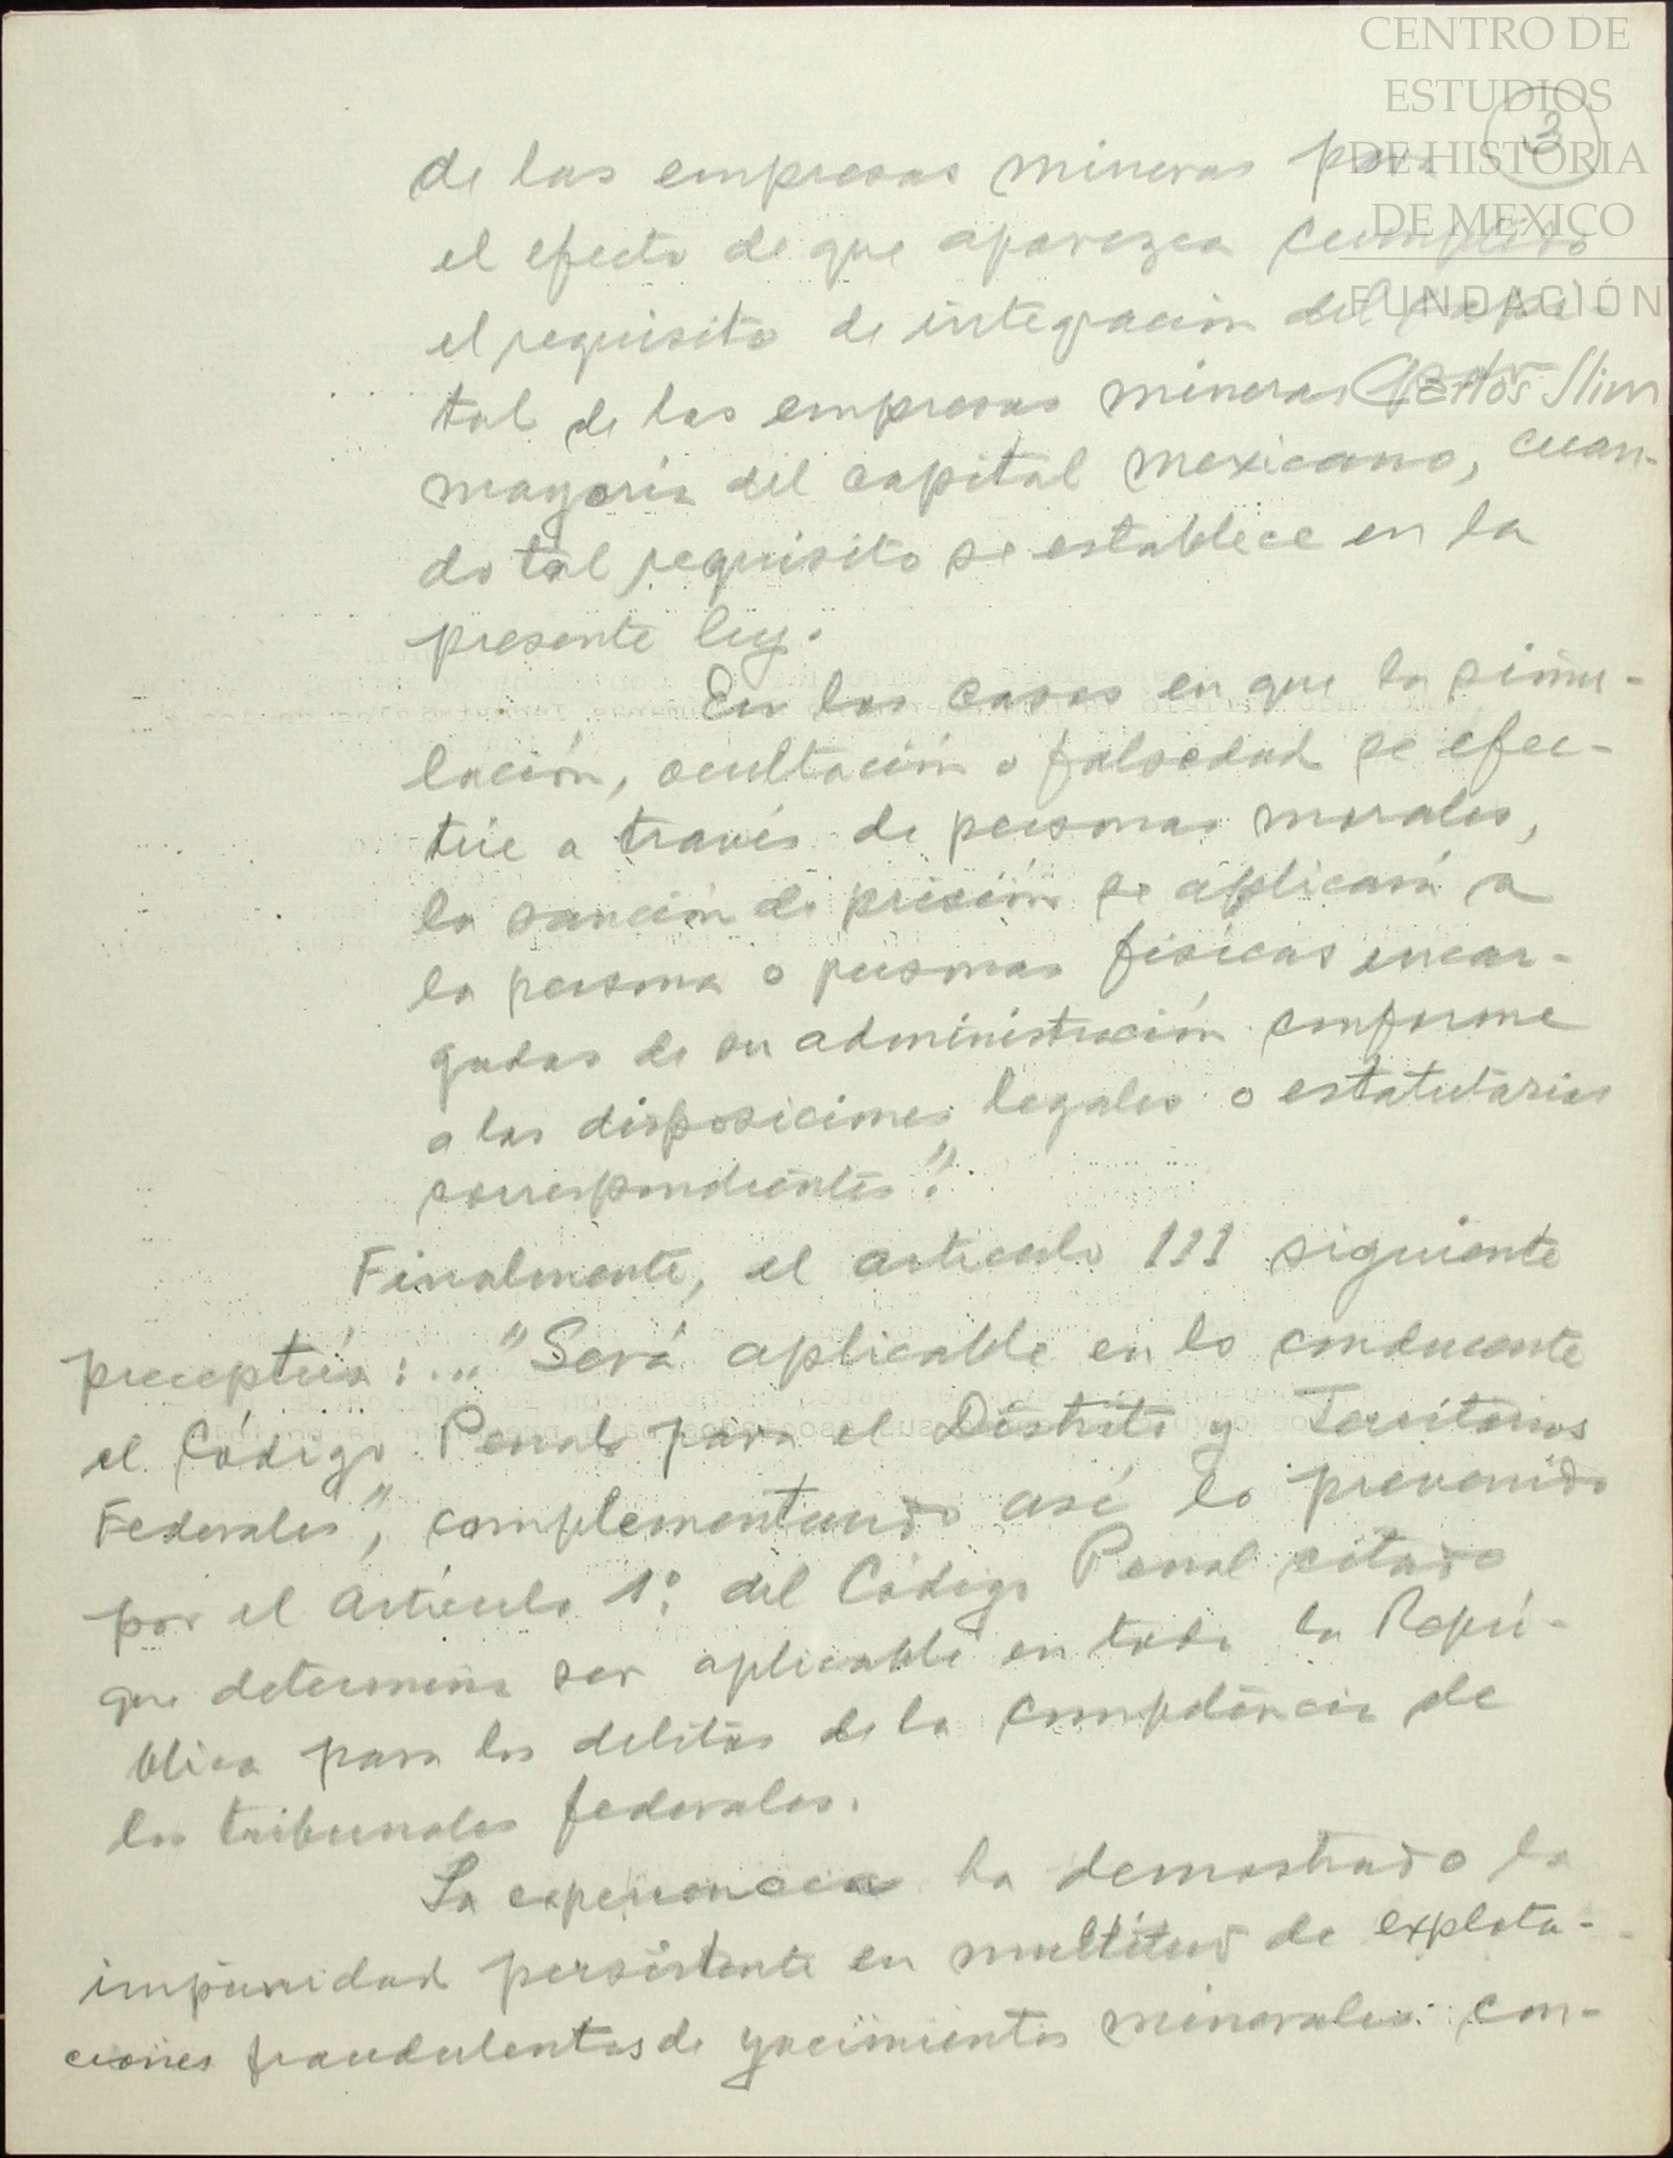 CENTRO DE
ESTUDIOS
DE HISTORIA
DE MEXICO
FUNDACIÓN
Carlos Slim
3
de las empresas mineras para
el efecto de que aparezca cumplido
el requisito de integración del capi-
tal de las empresas mineras por
mayoría del capital mexicano, cuan-
do tal requisito se establece en la
presente ley.
En los casos en que la simu-
lación, ocultación o falsedad se efec-
túe a través de personas morales,
la sanción de prisión se aplicará a
la persona o personas físicas encar-
gadas de su administración conforme
a las disposiciones legales o estatutarias
correspondientes".
Finalmente, el artículo 111 siguiente
preceptúa: ..." Será aplicable en lo conducente
el Código Penal para el Distrito y Territorios
Federales", complementando así lo prevenido
por el Artículo 1º. del Código Penal citado
que determina ser aplicable en toda la Repú-
blica para los delitos de la competencia de
los tribunales federales.
La experiencia ha demostrado la
impunidad persistente en multitud de explota-
ciones fraudulentas de yacimientos minerales con-